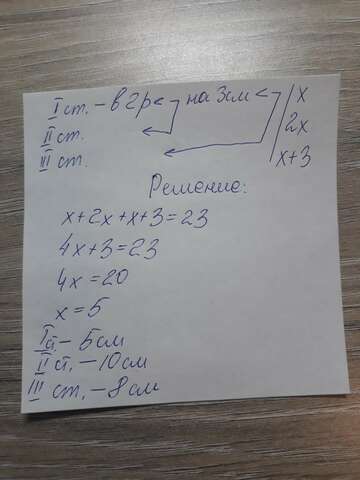 I ст. - в 2р < на 3см < x
II ст. 2x
III ст. x+3
Решение:
x+2x+x+3=23
4x+3=23
4x=20
x=5
I ст. - 5см
II ст. - 10см
III ст. - 8см